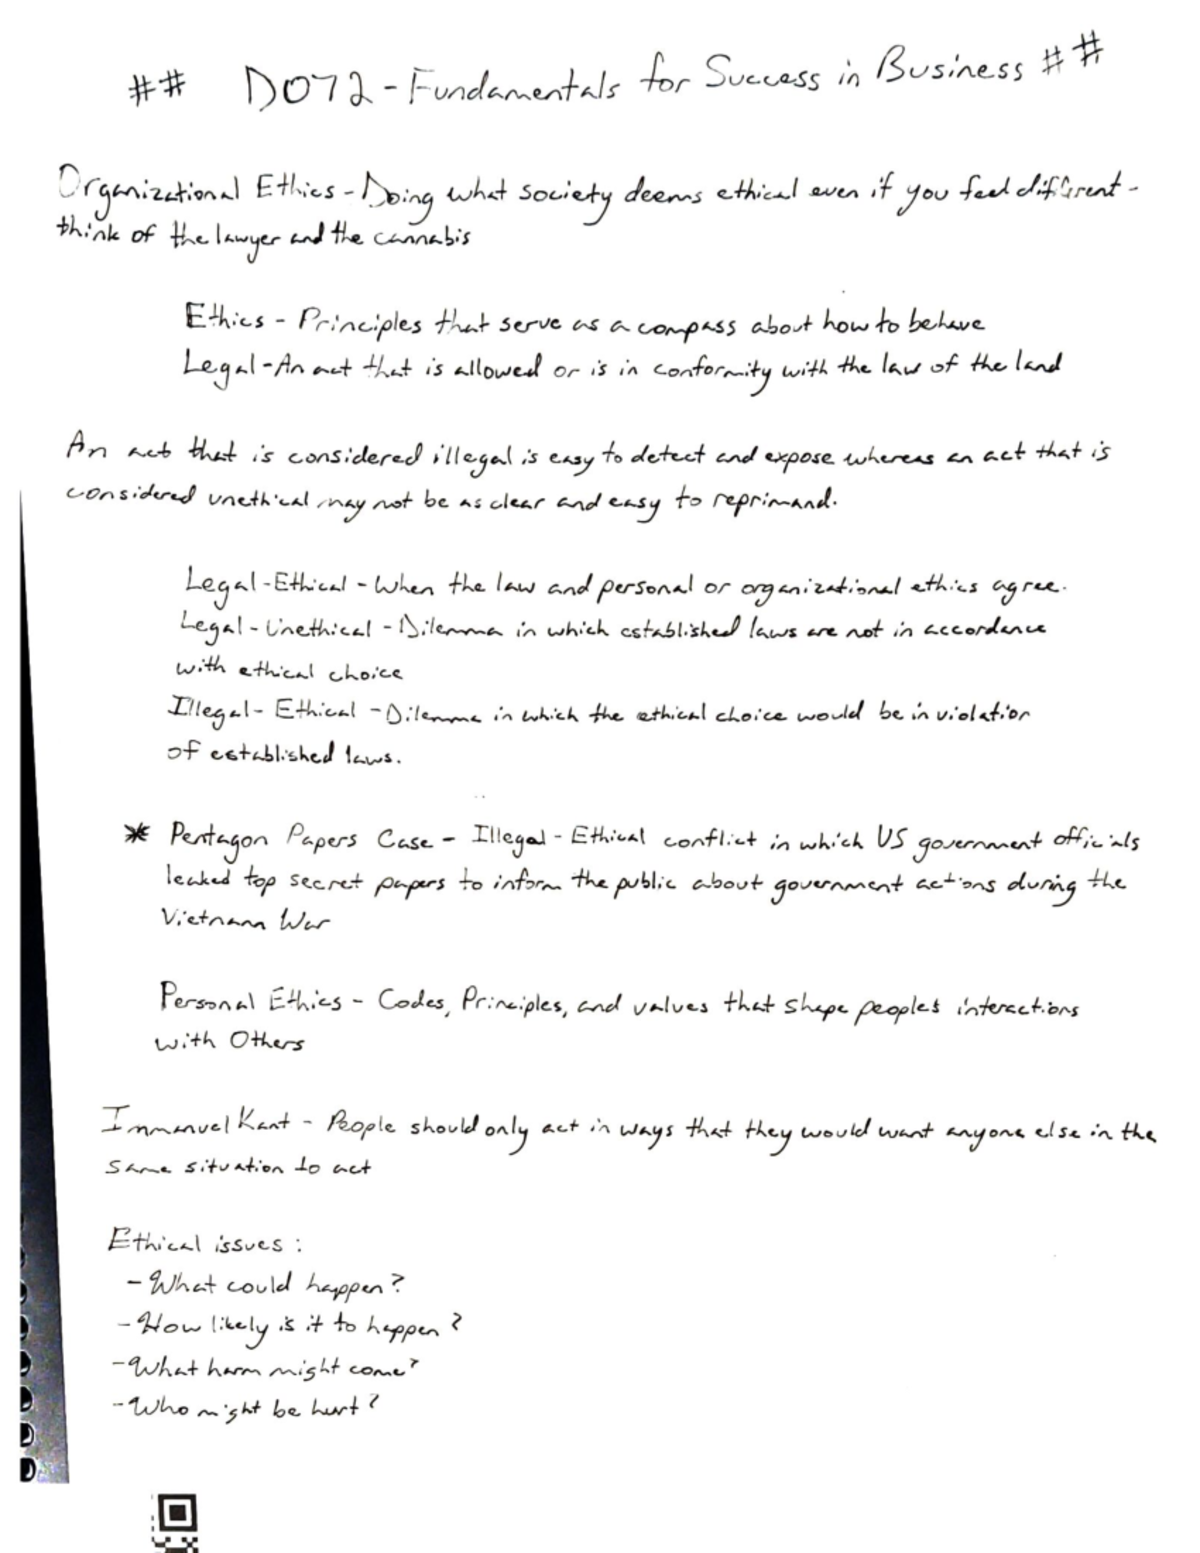 ## D072 - Fundamentals for Success in Business ##
Organizational Ethics - Doing what society deems ethical even if you feel different -
think of the lawyer and the cannabis
Ethics - Principles that serve as a compass about how to behave
Legal - An act that is allowed or is in conformity with the law of the land
An act that is considered illegal is easy to detect and expose whereas an act that is
considered unethical may not be as clear and easy to reprimand.
Legal - Ethical - When the law and personal or organizational ethics agree.
Legal - Unethical - Dilemma in which established laws are not in accordance
with ethical choice
Illegal - Ethical - Dilemma in which the ethical choice would be in violation
of established laws.
* Pentagon Papers Case - Illegal - Ethical conflict in which US government officials
leaked top secret papers to inform the public about government actions during the
Vietnam War
Personal Ethics - Codes, Principles, and values that shape people's interactions
with Others
Immanuel Kant - People should only act in ways that they would want anyone else in the
same situation to act
Ethical issues :
- What could happen?
- How likely is it to happen?
- What harm might come?
- Who might be hurt?